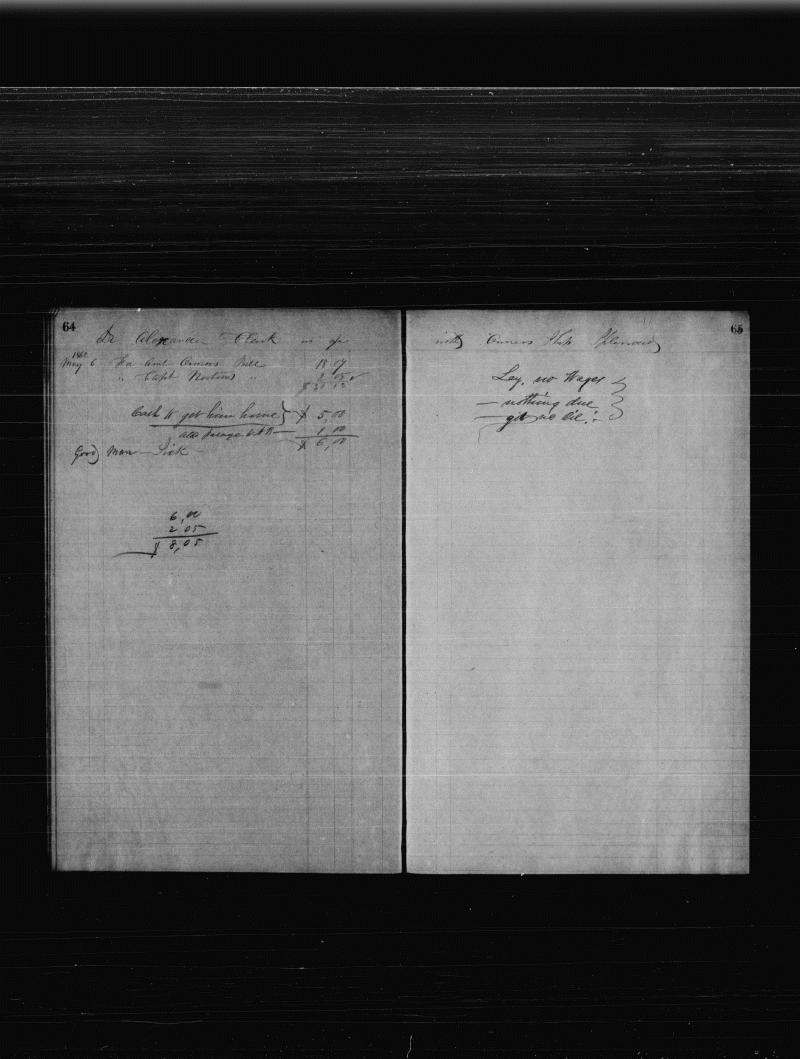 64
Dr Alexander Clark in a/c
1862
May 6 For Amt Owners Bill 18 07
" Capt Nortons " 2 05
$ 20 12
Cash to get him home } $ 5,00
also Passage 1 00
$ 6,00
Good Man Sick
6,00
2 05
$ 8,05
65
with Owners Ship
Lay, no Wages
— nothing due
— got no Oil:-